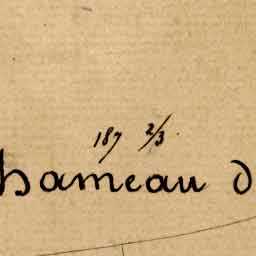 187 2/3
hameau d